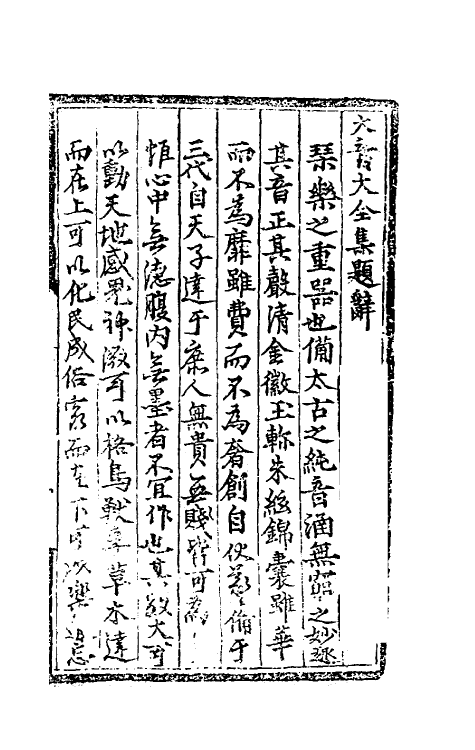 太音大全集題辭
琴樂之重器也備太古之純音涵無窮之妙趣
其音正其聲清金徽玉軫朱絲錦囊雖華
而不為靡雖費而不為奢創自伏羲備于
三代自天子達于庶人無貴無賤皆可為
惟心中無德腹內無墨者不宜作也其效大可
以動天地感鬼神微可以格鳥獸草木達
而在上可以化民成俗窮而在下可以樂忘